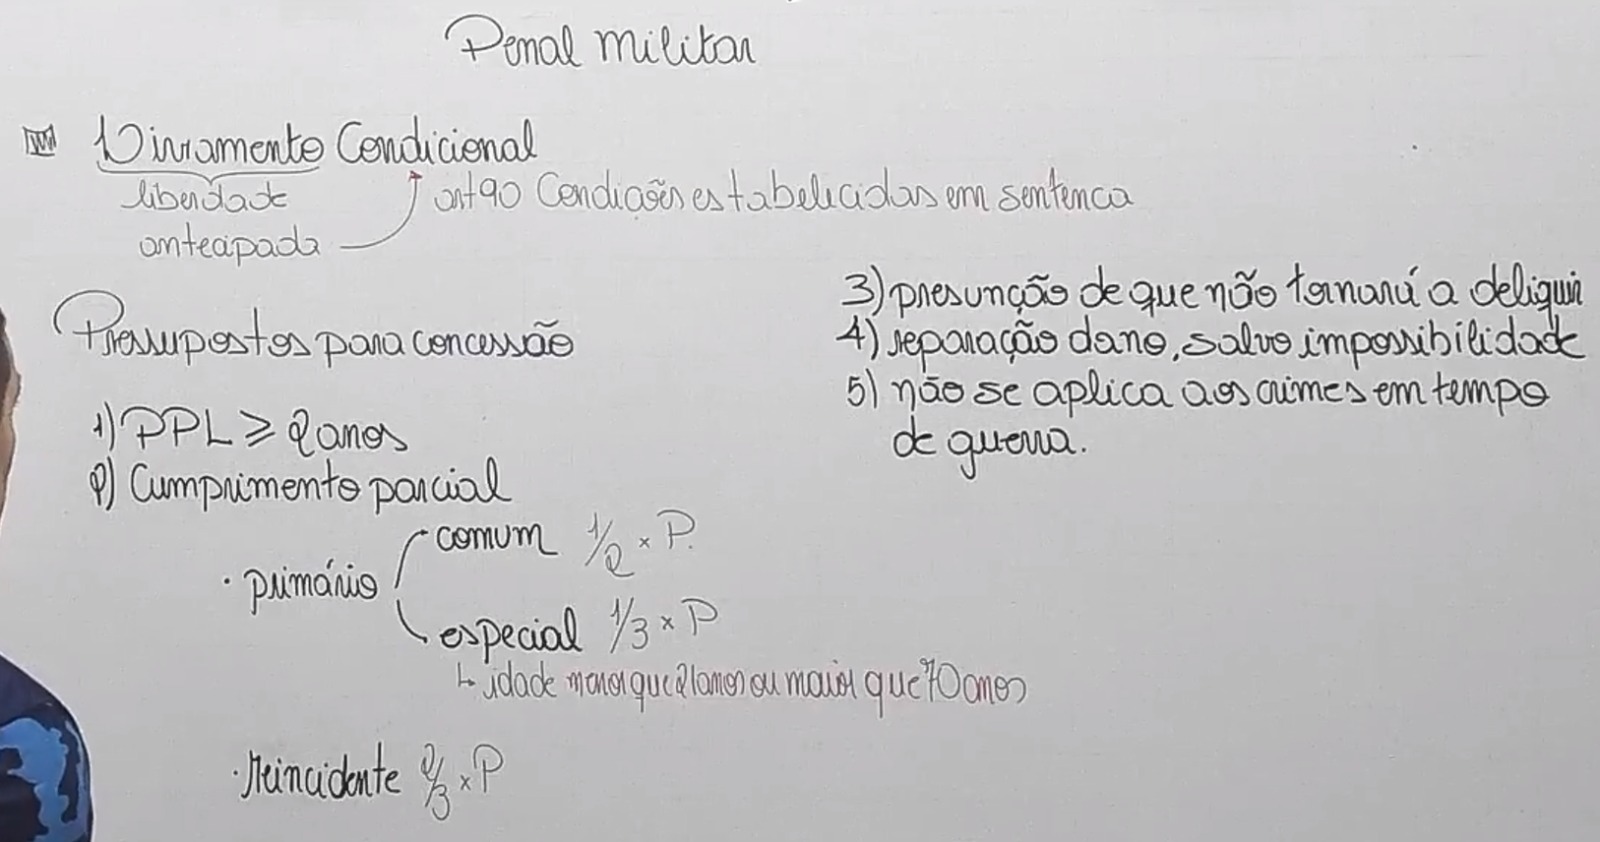 Penal militar
Livramento Condicional
liberdade
antecipada
art 90 Condições estabelicidas em sentenca
Pressupostos para concessão
1) PPL ≥ 2 anos
2) Cumprimento parcial
· primário
comum 1/2 × P.
especial 1/3 × P
↳ idade menor que 21 anos ou maior que 70 anos
· reincidente 2/3 × P
3) presunção de que não tornará a deliquir
4) reparação dano, salvo impossibilidade
5) não se aplica aos crimes em tempo
de guerra.